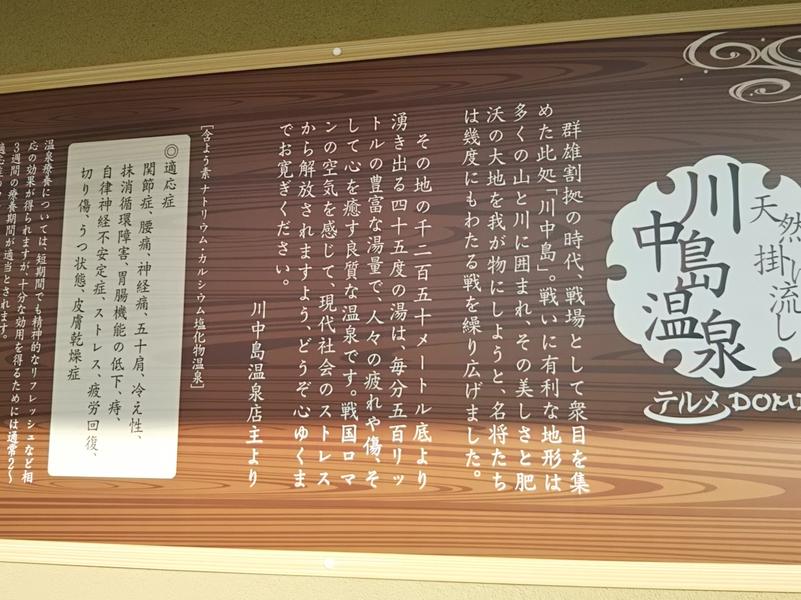 天然
掛け流し
川
中島
温泉
テルメDOME
群雄割拠の時代、戦場として衆目を集
めた此処「川中島」。戦いに有利な地形は
多くの山と川に囲まれ、その美しさと肥
沃の大地を我が物にしようと、名将たち
は幾度にもわたる戦を繰り広げました。
その地の千二百五十メートル底より
湧き出る四十五度の湯は、毎分五百リッ
トルの豊富な湯量で、人々の疲れや傷、そ
して心を癒す良質な温泉です。戦国ロマ
ンの空気を感じて、現代社会のストレス
から解放されますよう、どうぞ心ゆくま
でお寛ぎください。
川中島温泉店主より
［含よう素 ナトリウム・カルシウム塩化物温泉］
◎適応症
関節症、腰痛、神経痛、五十肩、冷え性、
抹消循環障害、胃腸機能の低下、痔、
自律神経不安定症、ストレス、疲労回復、
切り傷、うつ状態、皮膚乾燥症
温泉療養については、短期間でも精神的なリフレッシュなど相
応の効果が得られますが、十分な効用を得るためには通常2〜
3週間の療養期間が適当とされます。